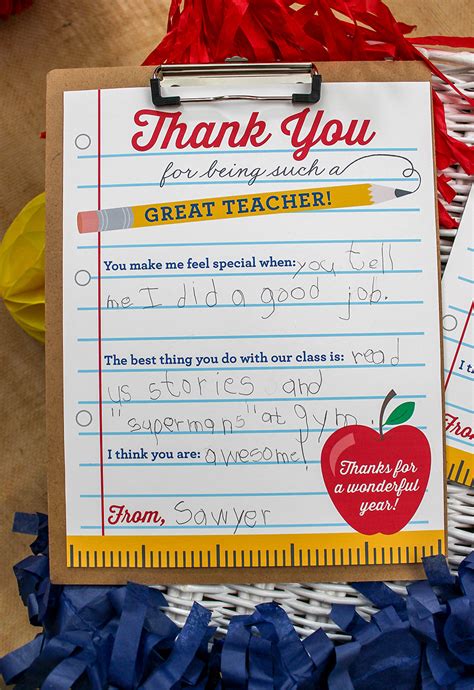 Thank You
for being such a
GREAT TEACHER!
You make me feel special when: you tell
me I did a good job.
The best thing you do with our class is: read
us stories and
"supermans" at gym.
I think you are: awesome!
Thanks for
a wonderful
year!
From, Sawyer